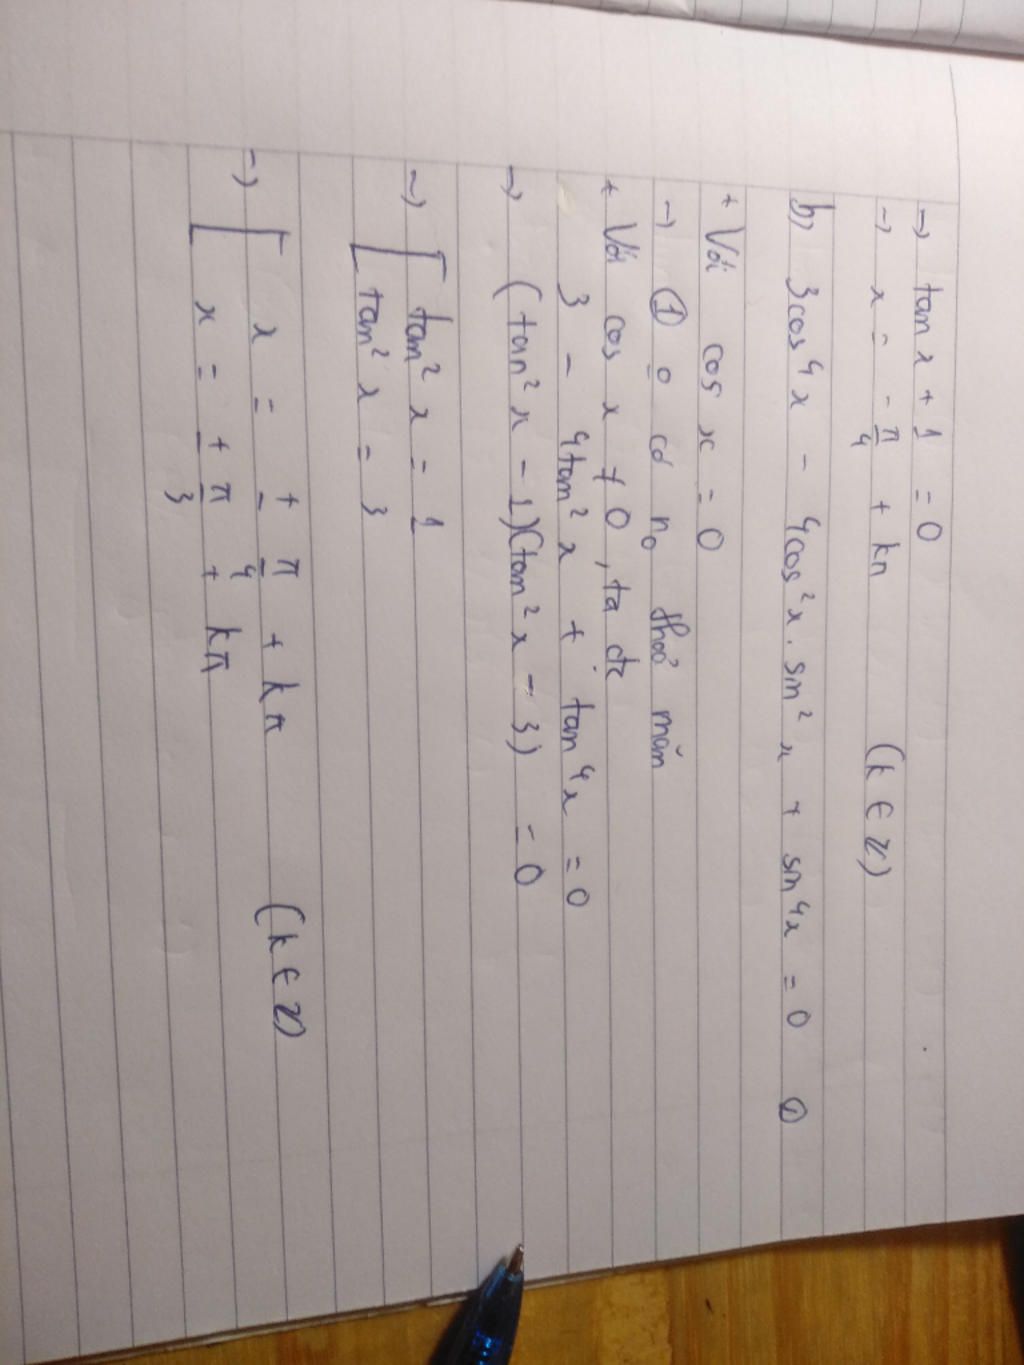 → tan x + 1 = 0
→ x = - π/4 + kπ (k ∈ Z)
b) 3cos⁴x - 4cos²x . sin²x + sin⁴x = 0 ①
+ Với cos x = 0
→ ① o có n₀ thoả mãn
+ Với cos x ≠ 0, ta đc
3 - 4tan²x + tan⁴x = 0
→ (tan²x - 1)(tan²x - 3) = 0
→ [ tan²x = 1
tan²x = 3
→ [ x = ± π/4 + kπ (k ∈ Z)
x = ± π/3 + kπ